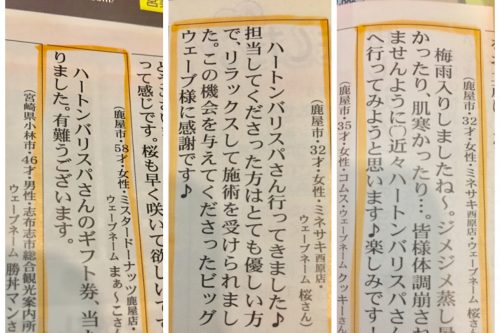 (鹿屋市・32才・女性・ミネサキ西原店・ウェーブネーム 桜さん)
梅雨入りしましたね~。ジメジメ蒸し
かったり、肌寒かったり…。皆様体調崩さ
ませんように○近々ハートンバリスパさ
へ行ってみようと思います♪楽しみです
(鹿屋市・35才・女性・コムス・ウェーブネーム クッキーさん
(鹿屋市・32才・女性・ミネサキ西原店・
ウェーブネーム 桜さん)
ハートンバリスパさん行ってきました♪
担当してくださった方はとても優しい方
で、リラックスして施術を受けられまし
た。この機会を与えてくださったビッグ
ウェーブ様に感謝です♪
って感じです。桜も早く咲いて欲しいで
(鹿屋市・58才・女性・ミスタードーナッツ鹿屋店・
ウェーブネーム まぁ~こさ
ハートンバリスパさんのギフト券、当
りました。有難うございます。
(宮崎県小林市・46才・男性・志布志市総合観光案内所
ウェーブネーム 勝丼マンさ